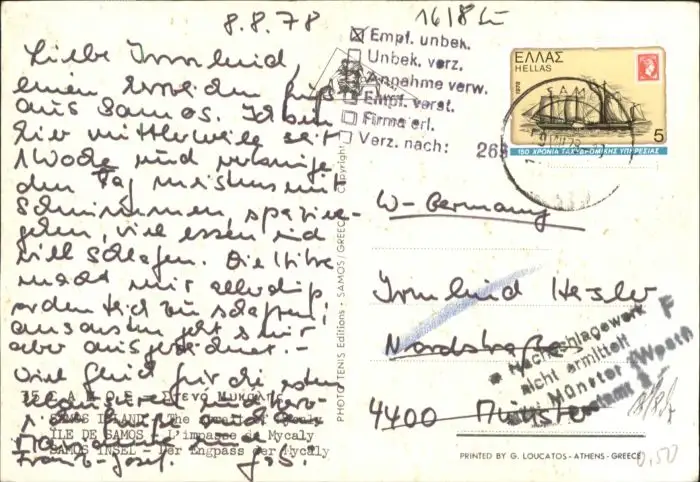 8.8.78
Liebe Irmlind,
einen Gruß
aus Samos. Ich bin
hier mittlerweile seit
1 Woche und verbringe
den Tag meistens mit
Schwimmen, spazie-
gehen, viel essen und
viel schlafen. Die Hitze
macht mir allerdings
ordentlich zu schaffen;
ansonsten geht's mir
aber ausgezeichnet. -
Viel Glück für die
Franz-Josef.
35 ΣΑΜΟΣ - Στενό Μυκάλης
SAMOS ISLAND - The Strait of Mycaly
ÎLE DE SAMOS - L'impasse de Mycaly
SAMOS INSEL - Der Engpass der Mycaly
PHOTO TENIS Editions - SAMOS/GREECE Copyright
1618
Empf. unbek.
Unbek. verz.
Annahme verw.
Empf. verst.
Firma erl.
Verz. nach:
269
ΕΛΛΑΣ
HELLAS
1978
5
150 ΧΡΟΝΙΑ ΤΑΧΥΔΡΟΜΙΚΗΣ ΥΠΗΡΕΣΙΑΣ
W-Germany
Irmlind Hesler
Nordstraße
4400 Münster
F
Nachschlagewerk
nicht ermittelt
Münster (Westf)
PRINTED BY G. LOUCATOS - ATHENS - GREECE
0,50